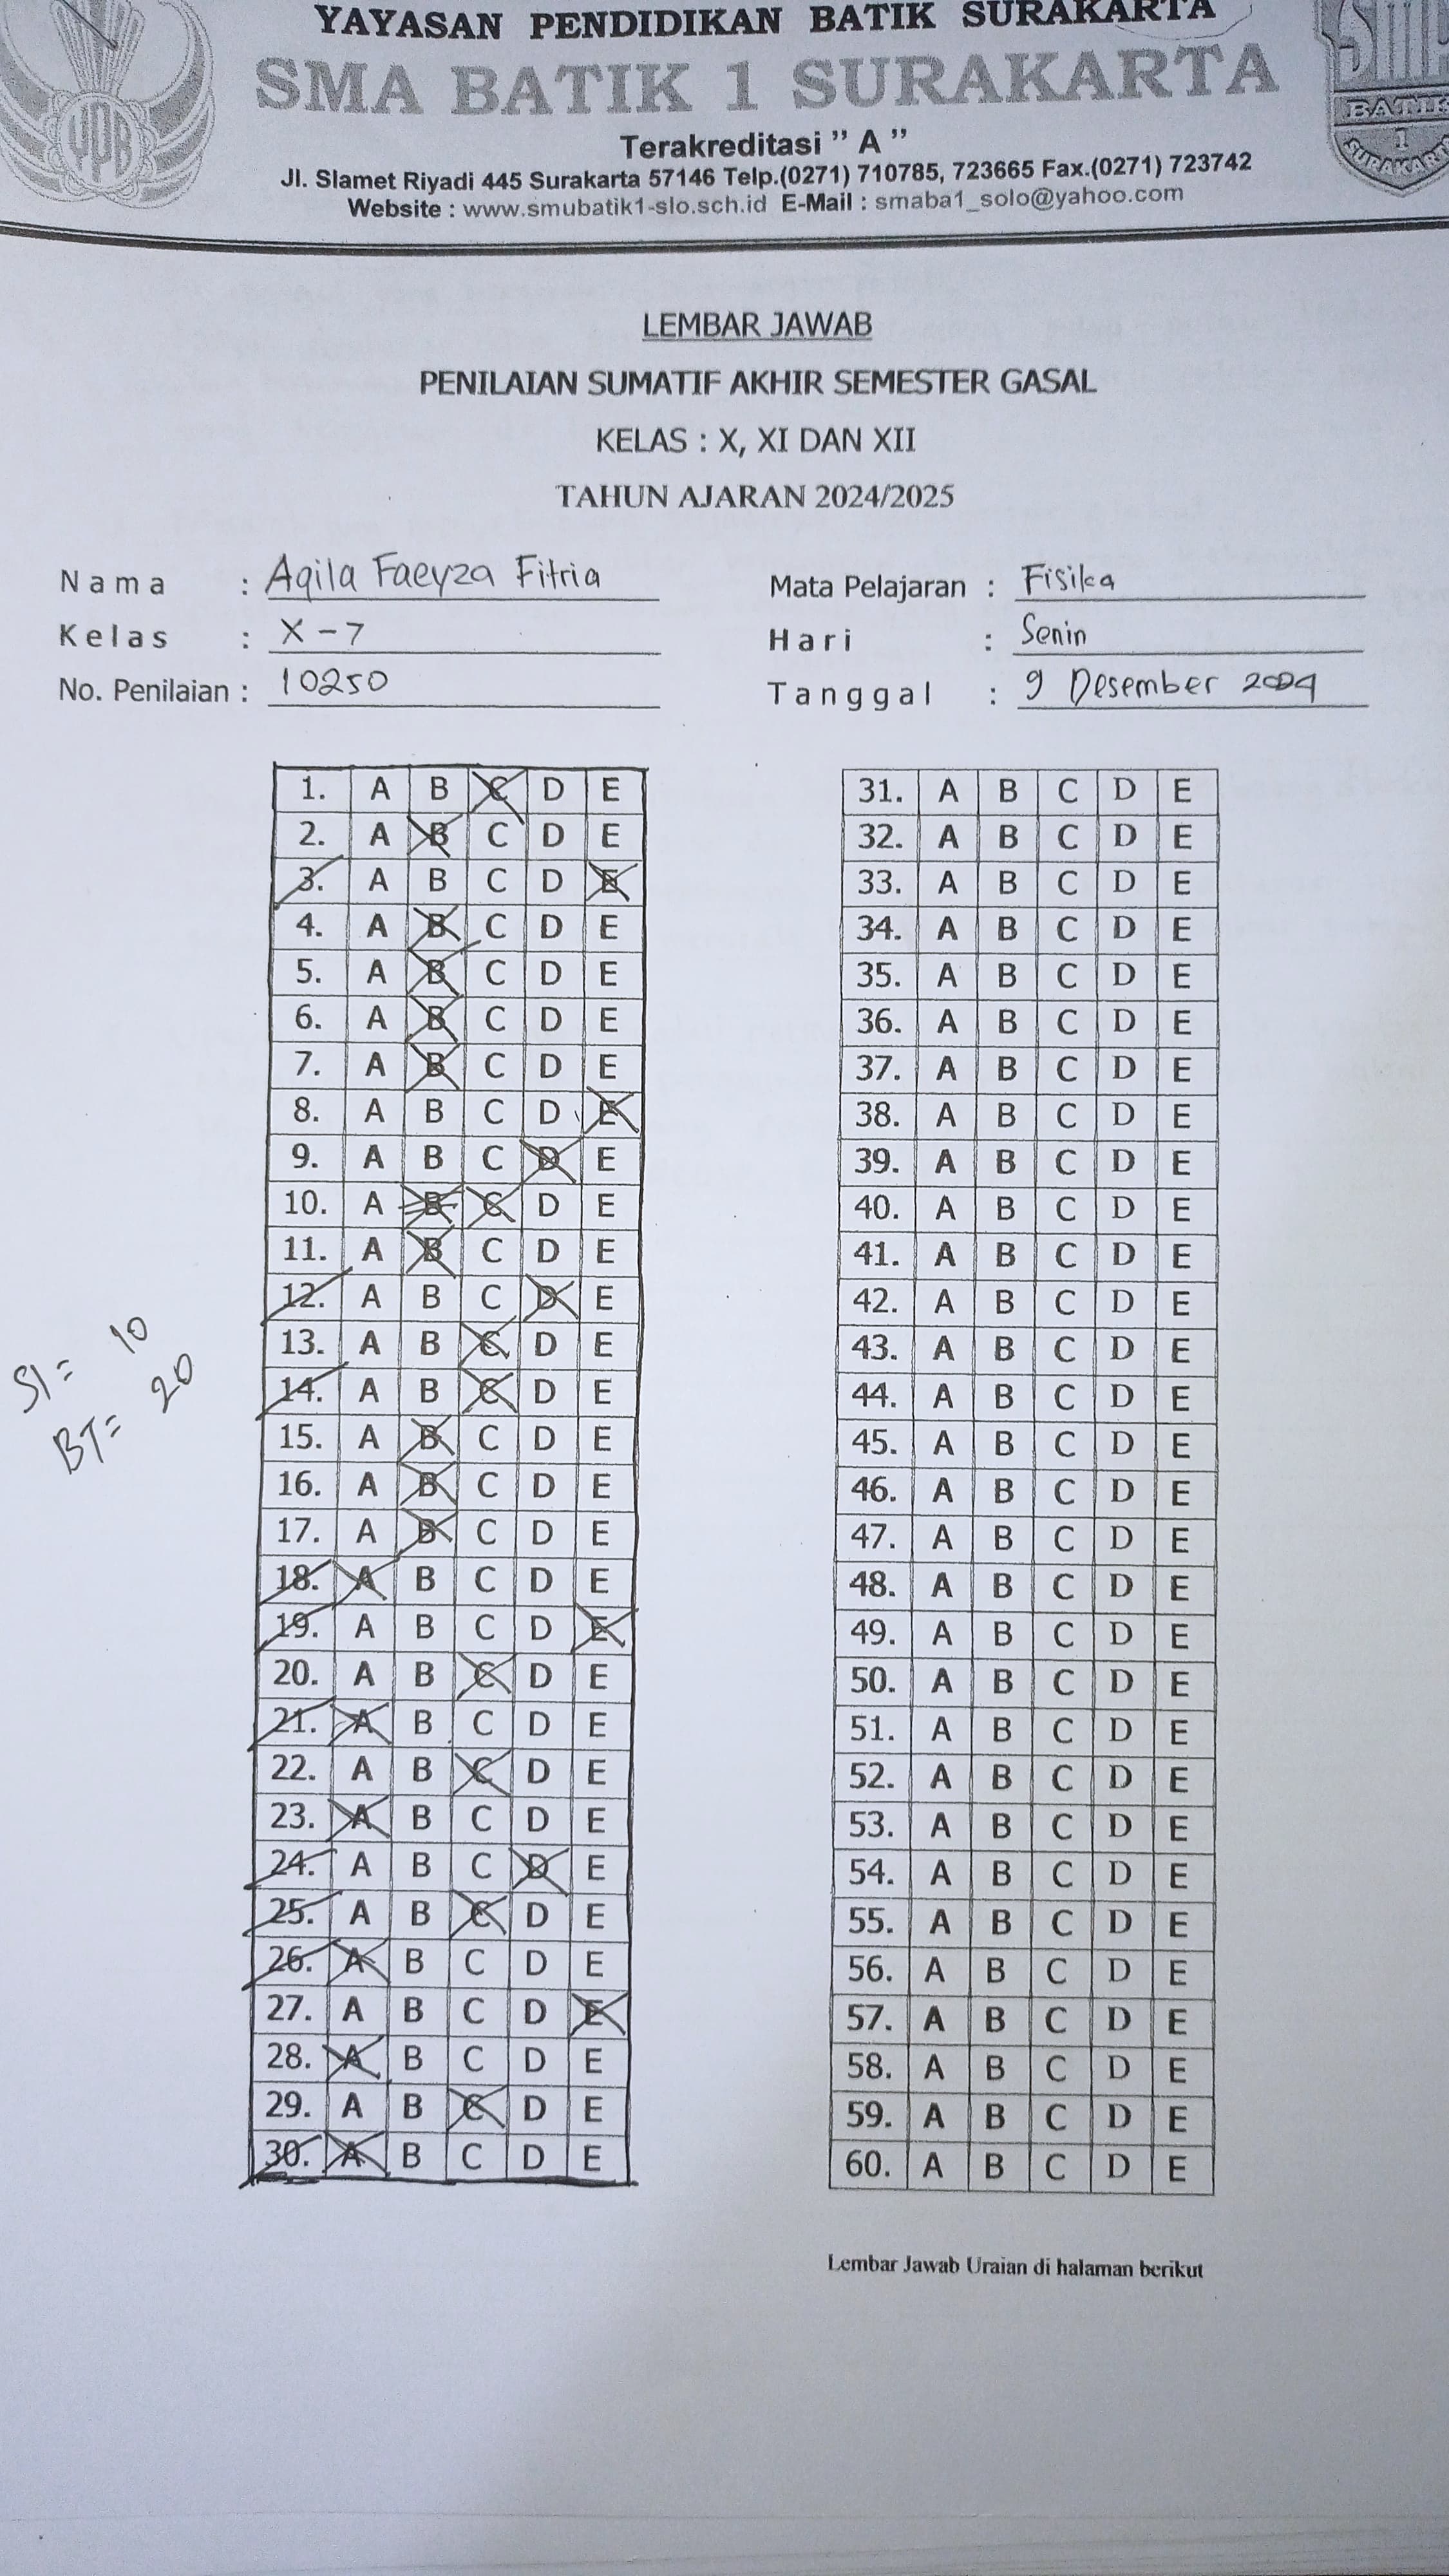 YAYASAN PENDIDIKAN BATIK SURAKARTA
SMA BATIK 1 SURAKARTA
Terakreditasi " A "
Jl. Slamet Riyadi 445 Surakarta 57146 Telp.(0271) 710785, 723665 Fax.(0271) 723742
Website : www.smubatik1-slo.sch.id E-Mail : smaba1_solo@yahoo.com
YPB
BATIK
1
SURAKARTA
LEMBAR JAWAB
PENILAIAN SUMATIF AKHIR SEMESTER GASAL
KELAS : X, XI DAN XII
TAHUN AJARAN 2024/2025
Nama : Aqila Faeyza Fitria
Mata Pelajaran : Fisika
Kelas : X - 7
Hari : Senin
No. Penilaian : 10250
Tanggal : 9 Desember 2024
1. A B C D E
2. A B C D E
3. A B C D E
4. A B C D E
5. A B C D E
6. A B C D E
7. A B C D E
8. A B C D E
9. A B C D E
10. A B C D E
11. A B C D E
12. A B C D E
13. A B C D E
14. A B C D E
15. A B C D E
16. A B C D E
17. A B C D E
18. A B C D E
19. A B C D E
20. A B C D E
21. A B C D E
22. A B C D E
23. A B C D E
24. A B C D E
25. A B C D E
26. A B C D E
27. A B C D E
28. A B C D E
29. A B C D E
30. A B C D E
Sl = 10
BT = 20
31. A B C D E
32. A B C D E
33. A B C D E
34. A B C D E
35. A B C D E
36. A B C D E
37. A B C D E
38. A B C D E
39. A B C D E
40. A B C D E
41. A B C D E
42. A B C D E
43. A B C D E
44. A B C D E
45. A B C D E
46. A B C D E
47. A B C D E
48. A B C D E
49. A B C D E
50. A B C D E
51. A B C D E
52. A B C D E
53. A B C D E
54. A B C D E
55. A B C D E
56. A B C D E
57. A B C D E
58. A B C D E
59. A B C D E
60. A B C D E
Lembar Jawab Uraian di halaman berikut